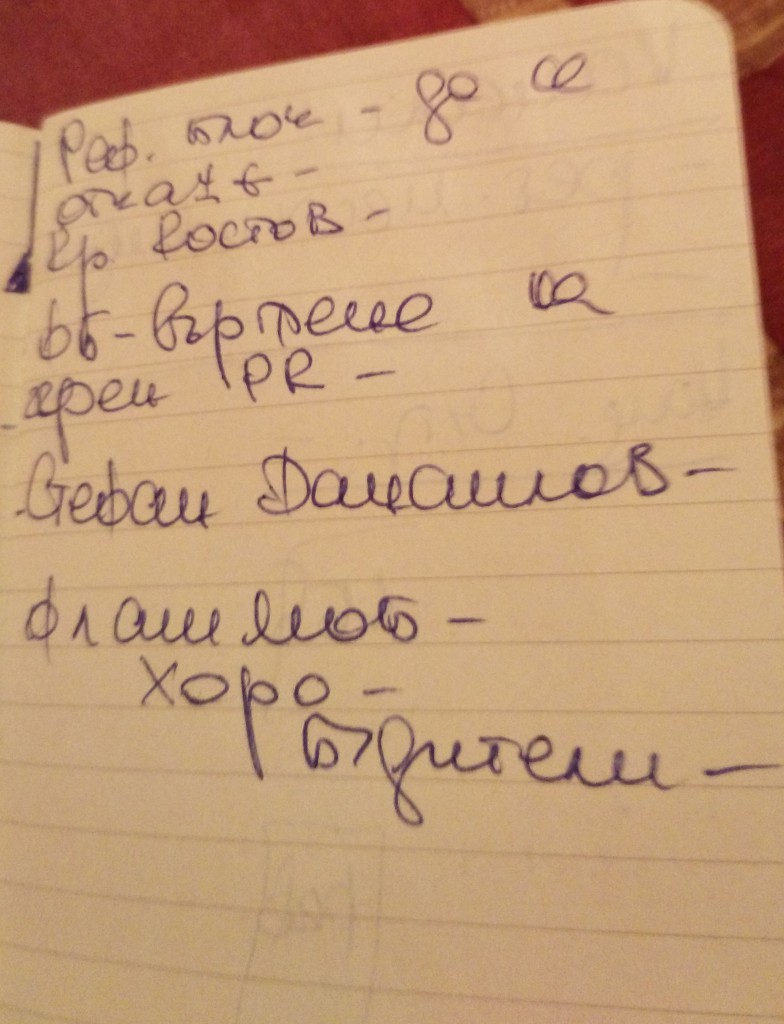 Реф. блок - да се
откаже -
Хр. Костов -
ББ - въртене на
хрен PR -
Стефан Данаилов -
флашмоб -
хоро -
Будители -